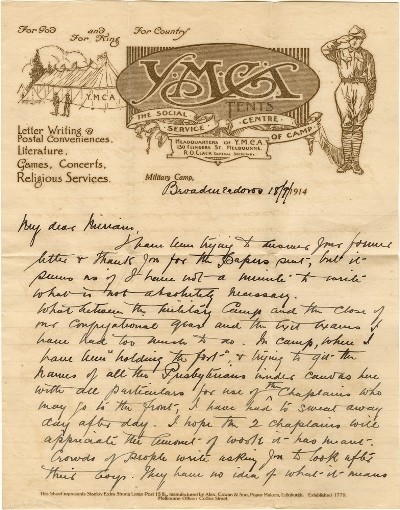 For God and For King For Country
Y.M.C.A.
Y.M.C.A
TENTS
THE SOCIAL SERVICE CENTRE OF CAMP
HEADQUARTERS OF Y.M.C.A.
MELBOURNE.
Letter Writing &
Postal Conveniences,
Literature,
Games, Concerts,
Religious Services.
Military Camp,
Broadmeadows 18/9/1914
My dear
I have been trying to answer your former
letter & thank you for the papers sent, but it
seems as if I have not a minute to write
what is not absolutely necessary.
What between the Military Camp and the close of
our Congregational year and the exams I
have had too much to do. In camp, where I
have been "holding the fort", & trying to get the
names of all the Presbyterians under canvas here
with all particulars for use of the Chaplains who
may go to the front, I have had to sweat away
day after day. I hope the 2 chaplains will
appreciate the amount of work it has meant.
Crowds of people write asking you to look after
their boys. They have no idea of what it means
This Sheet represents Stanley Extra Strong Large Post 15 lb., manufactured by Alex. Cowan & Sons, Paper Makers, Edinburgh. Established 1779.
Melbourne Office: Collins Street.